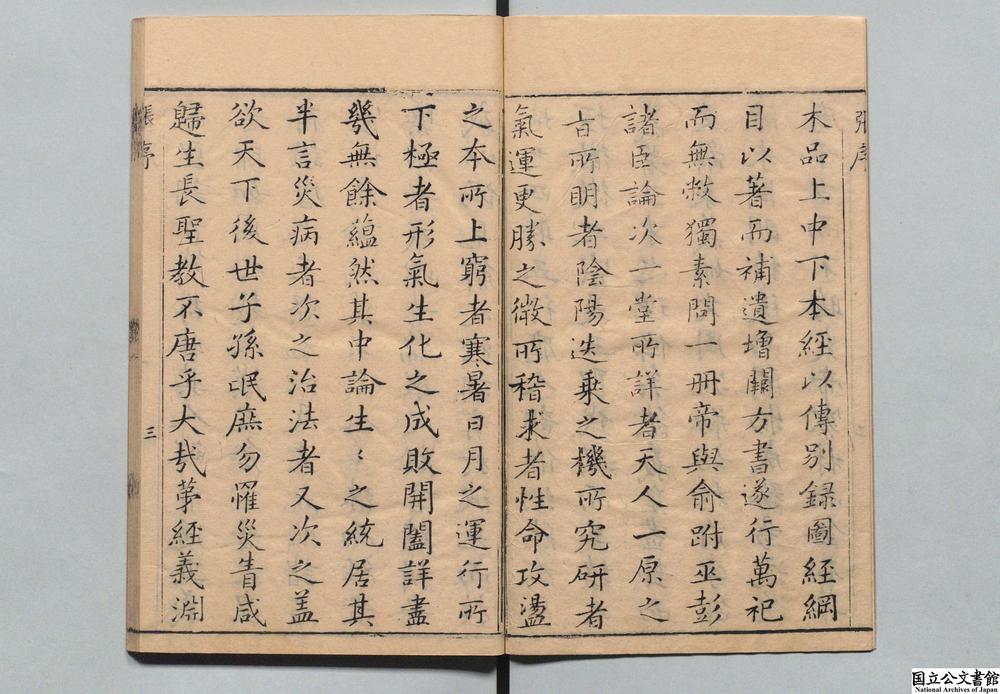 木品上中下本經以傳别録圖經綱
目以著而補遺增闕方書遂行萬祀
而無敝獨素問一册帝與俞跗巫彭
諸臣論次一堂所詳者天人一原之
旨所明者陰陽迭乘之機所究研者
氣運更勝之微所稽求者性命攻盪
之本所上窮者寒暑日月之運行所
下極者形氣生化之成敗開闔詳盡
幾無餘蘊然其中論生〻之統居其
半言災病者次之治法者又次之蓋
欲天下後世子孫氓庶勿罹災眚咸
歸生長聖教不唐乎大㢤苐經義淵
張序
三
国立公文書館
National Archives of Japan